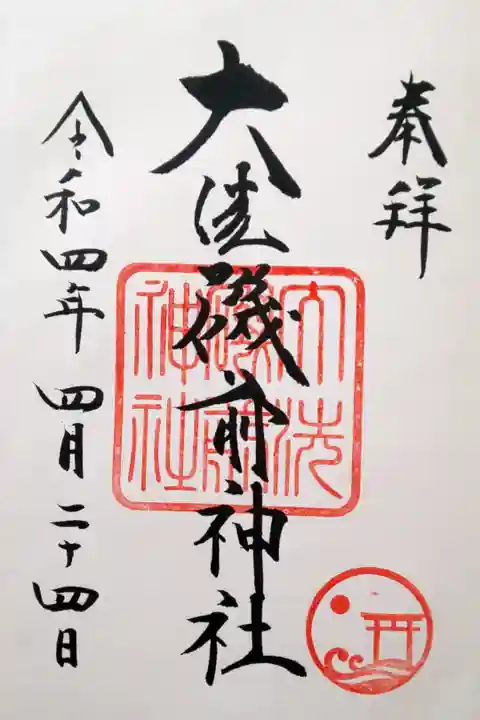 奉拝
大洗磯前神社
大洗
磯前
神社
令和四年 四月二十四日